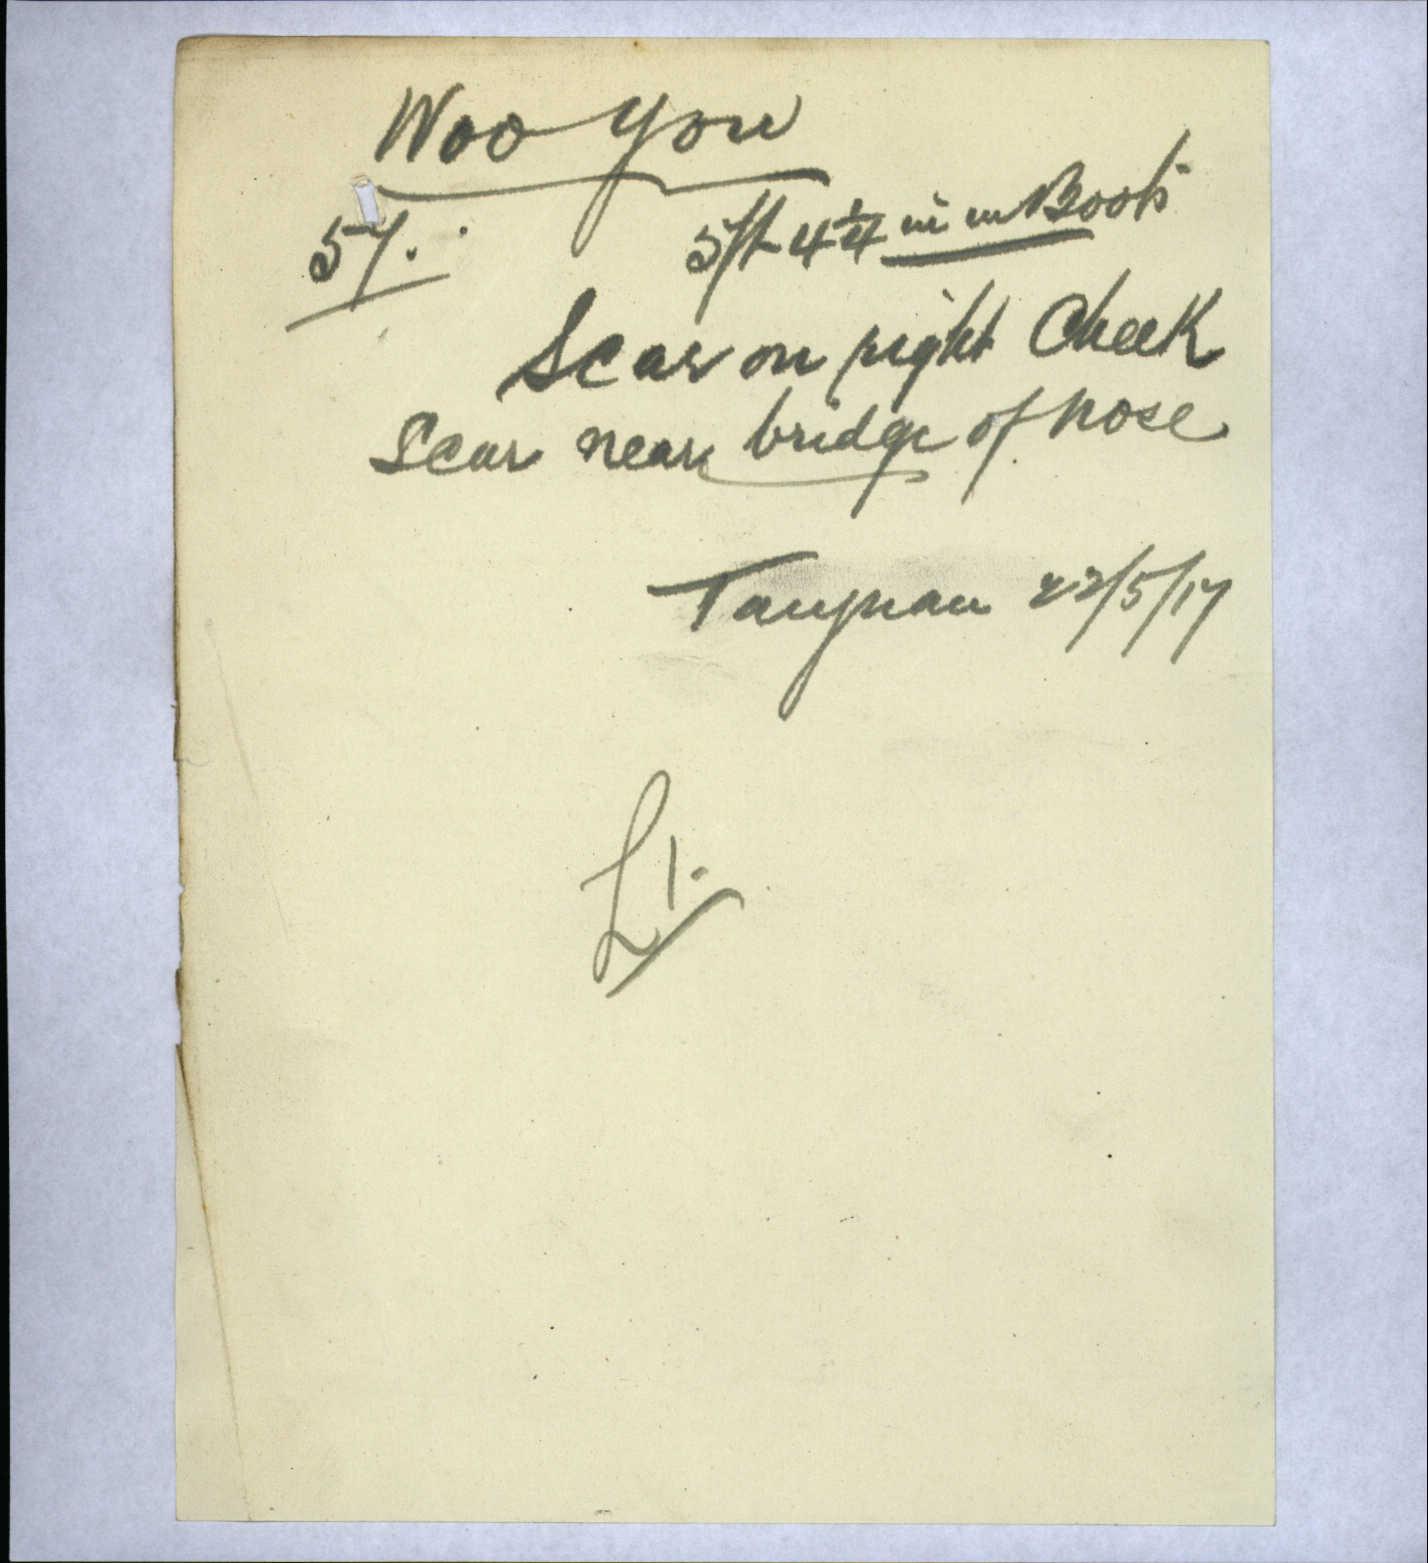 Woo You
57. 5ft 4 1/4 in in Boots
Scar on right Cheek
Scar near bridge of nose
Taiyuan 22/5/17
£1.